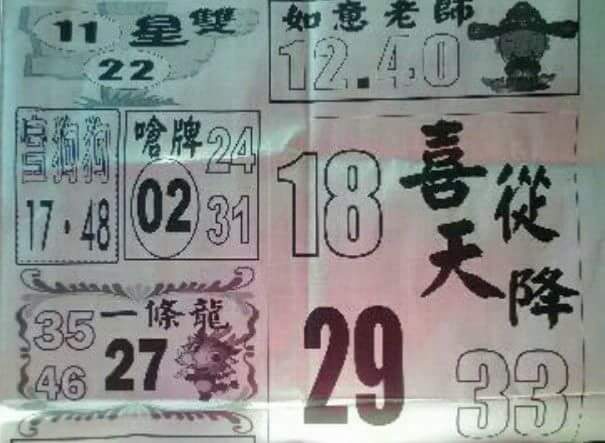 11 星雙
22
如意老師
12.40
富狗狗
17·48
嗆牌
02
24
31
18
喜從天降
29
33
一條龍
35
27
46